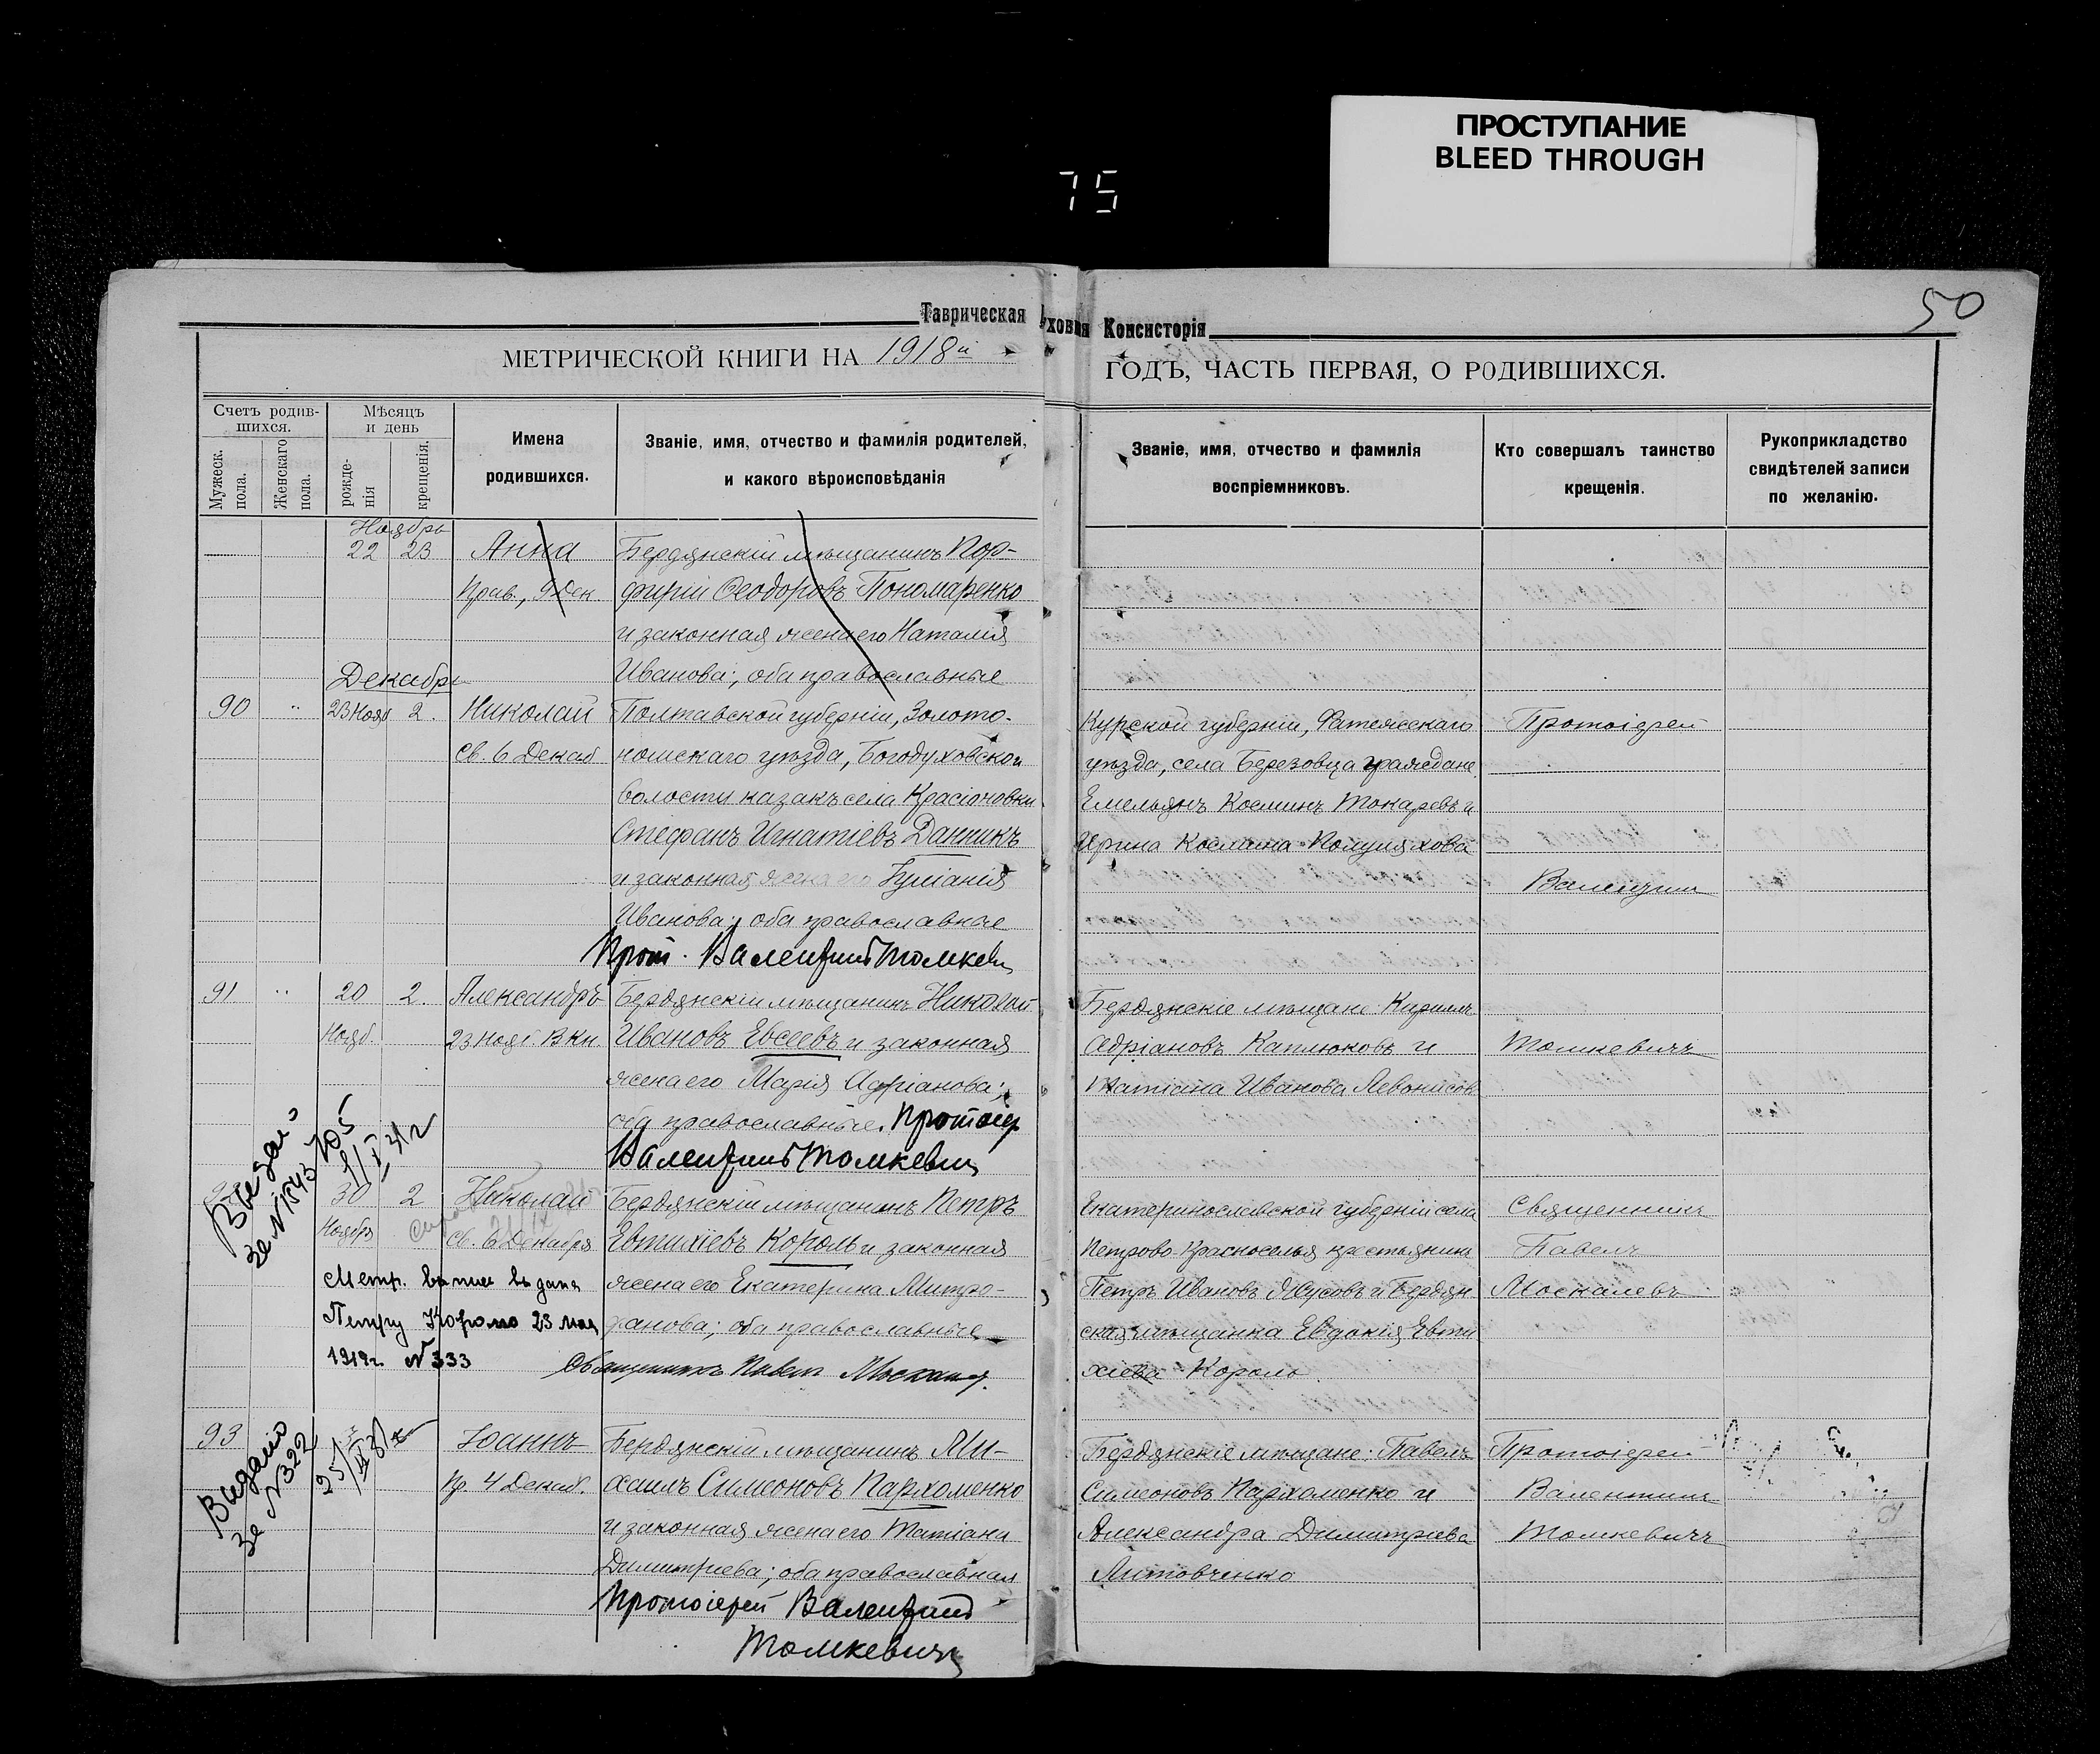 ПРОСТУПАНИЕ
BLEED THROUGH
75
50
Таврическая
уховная Консисторія
МЕТРИЧЕСКОЙ КНИГИ НА 1918й
ГОДЪ, ЧАСТЬ ПЕРВАЯ, О РОДИВШИХСЯ.
Счетъ родив-
шихся.
Мужеск.
пола.
Женскаго
пола.
Мѣсяцъ
и день
рожде-
нія
крещенія.
Имена
родившихся.
Званіе, имя, отчество и фамилія родителей,
и какого вѣроисповѣданія
Званіе, имя, отчество и фамилія
воспріемниковъ.
Кто совершалъ таинство
крещенія.
Рукоприкладство
свидѣтелей записи
по желанію.
Ноябрь
22 23 Анна Бердянскій мѣщанинъ Пор-
Прав., 9 Дек. фирій Ѳеодоровъ Пономаренко
и законная жена его Наталія
Иванова; оба православные
Декабрь
90 " 23 Нояб 2. Николай Полтавской губерніи, Золото-
Св. 6 Декаб ношскаго уѣзда, Богодуховской
волости казакъ села Красіоновки
Стефанъ Игнатіевъ Данникъ
и законная жена его Іуліанія
Иванова; оба православные
Прот. Валентинъ Томкевич
Курской губерніи, Фатежскаго Протоіерей
уѣзда, села Березовца граждане
Емельянъ Косминъ Токаревъ и
Ирина Космина
Валентинъ
91 " 20 2. Александръ Бердянскій мѣщанинъ Николай
Нояб. 23 Нояб. В Кн. Ивановъ Евсеевъ и законная
жена его Марія Адріанова;
оба православные. Протоіер
Валентинъ Томкевич
Бердянскіе мѣщане Кириллъ
Адріановъ Каплюковъ и Томкевичъ
Татіана Иванова
Выдан
за N 1543
31 г
30 2 Николай Бердянскій мѣщанинъ Петръ
Ноябрь Св. 6 Декабря Евтихіевъ Король и законная
Метр. выпись выдана жена его Екатерина Митро-
Петру Королю 23 мая фанова; оба православные
1919 г. N 333 Священникъ Павелъ Москалев
Екатеринославской губерніи села Священникъ
Петрово-Красноселья крестьянинъ Павелъ
Петръ Ивановъ и Бердян Москалевъ
ская мѣщанка Евдокія Евти
хіева Король
93 Іоаннъ Бердянскій мѣщанинъ Ми-
Пр. 4 Декаб. хаилъ Симеоновъ Пархоменко
и законная жена его Татіана
Димитріева; оба православная
Протоіерей Валентинъ
Томкевичъ
Видано
За N 322
Бердянскіе мѣщане: Павелъ Протоіерей
Симеоновъ Пархоменко и Валентинъ
Александра Димитріева Томкевичъ
Литовченко